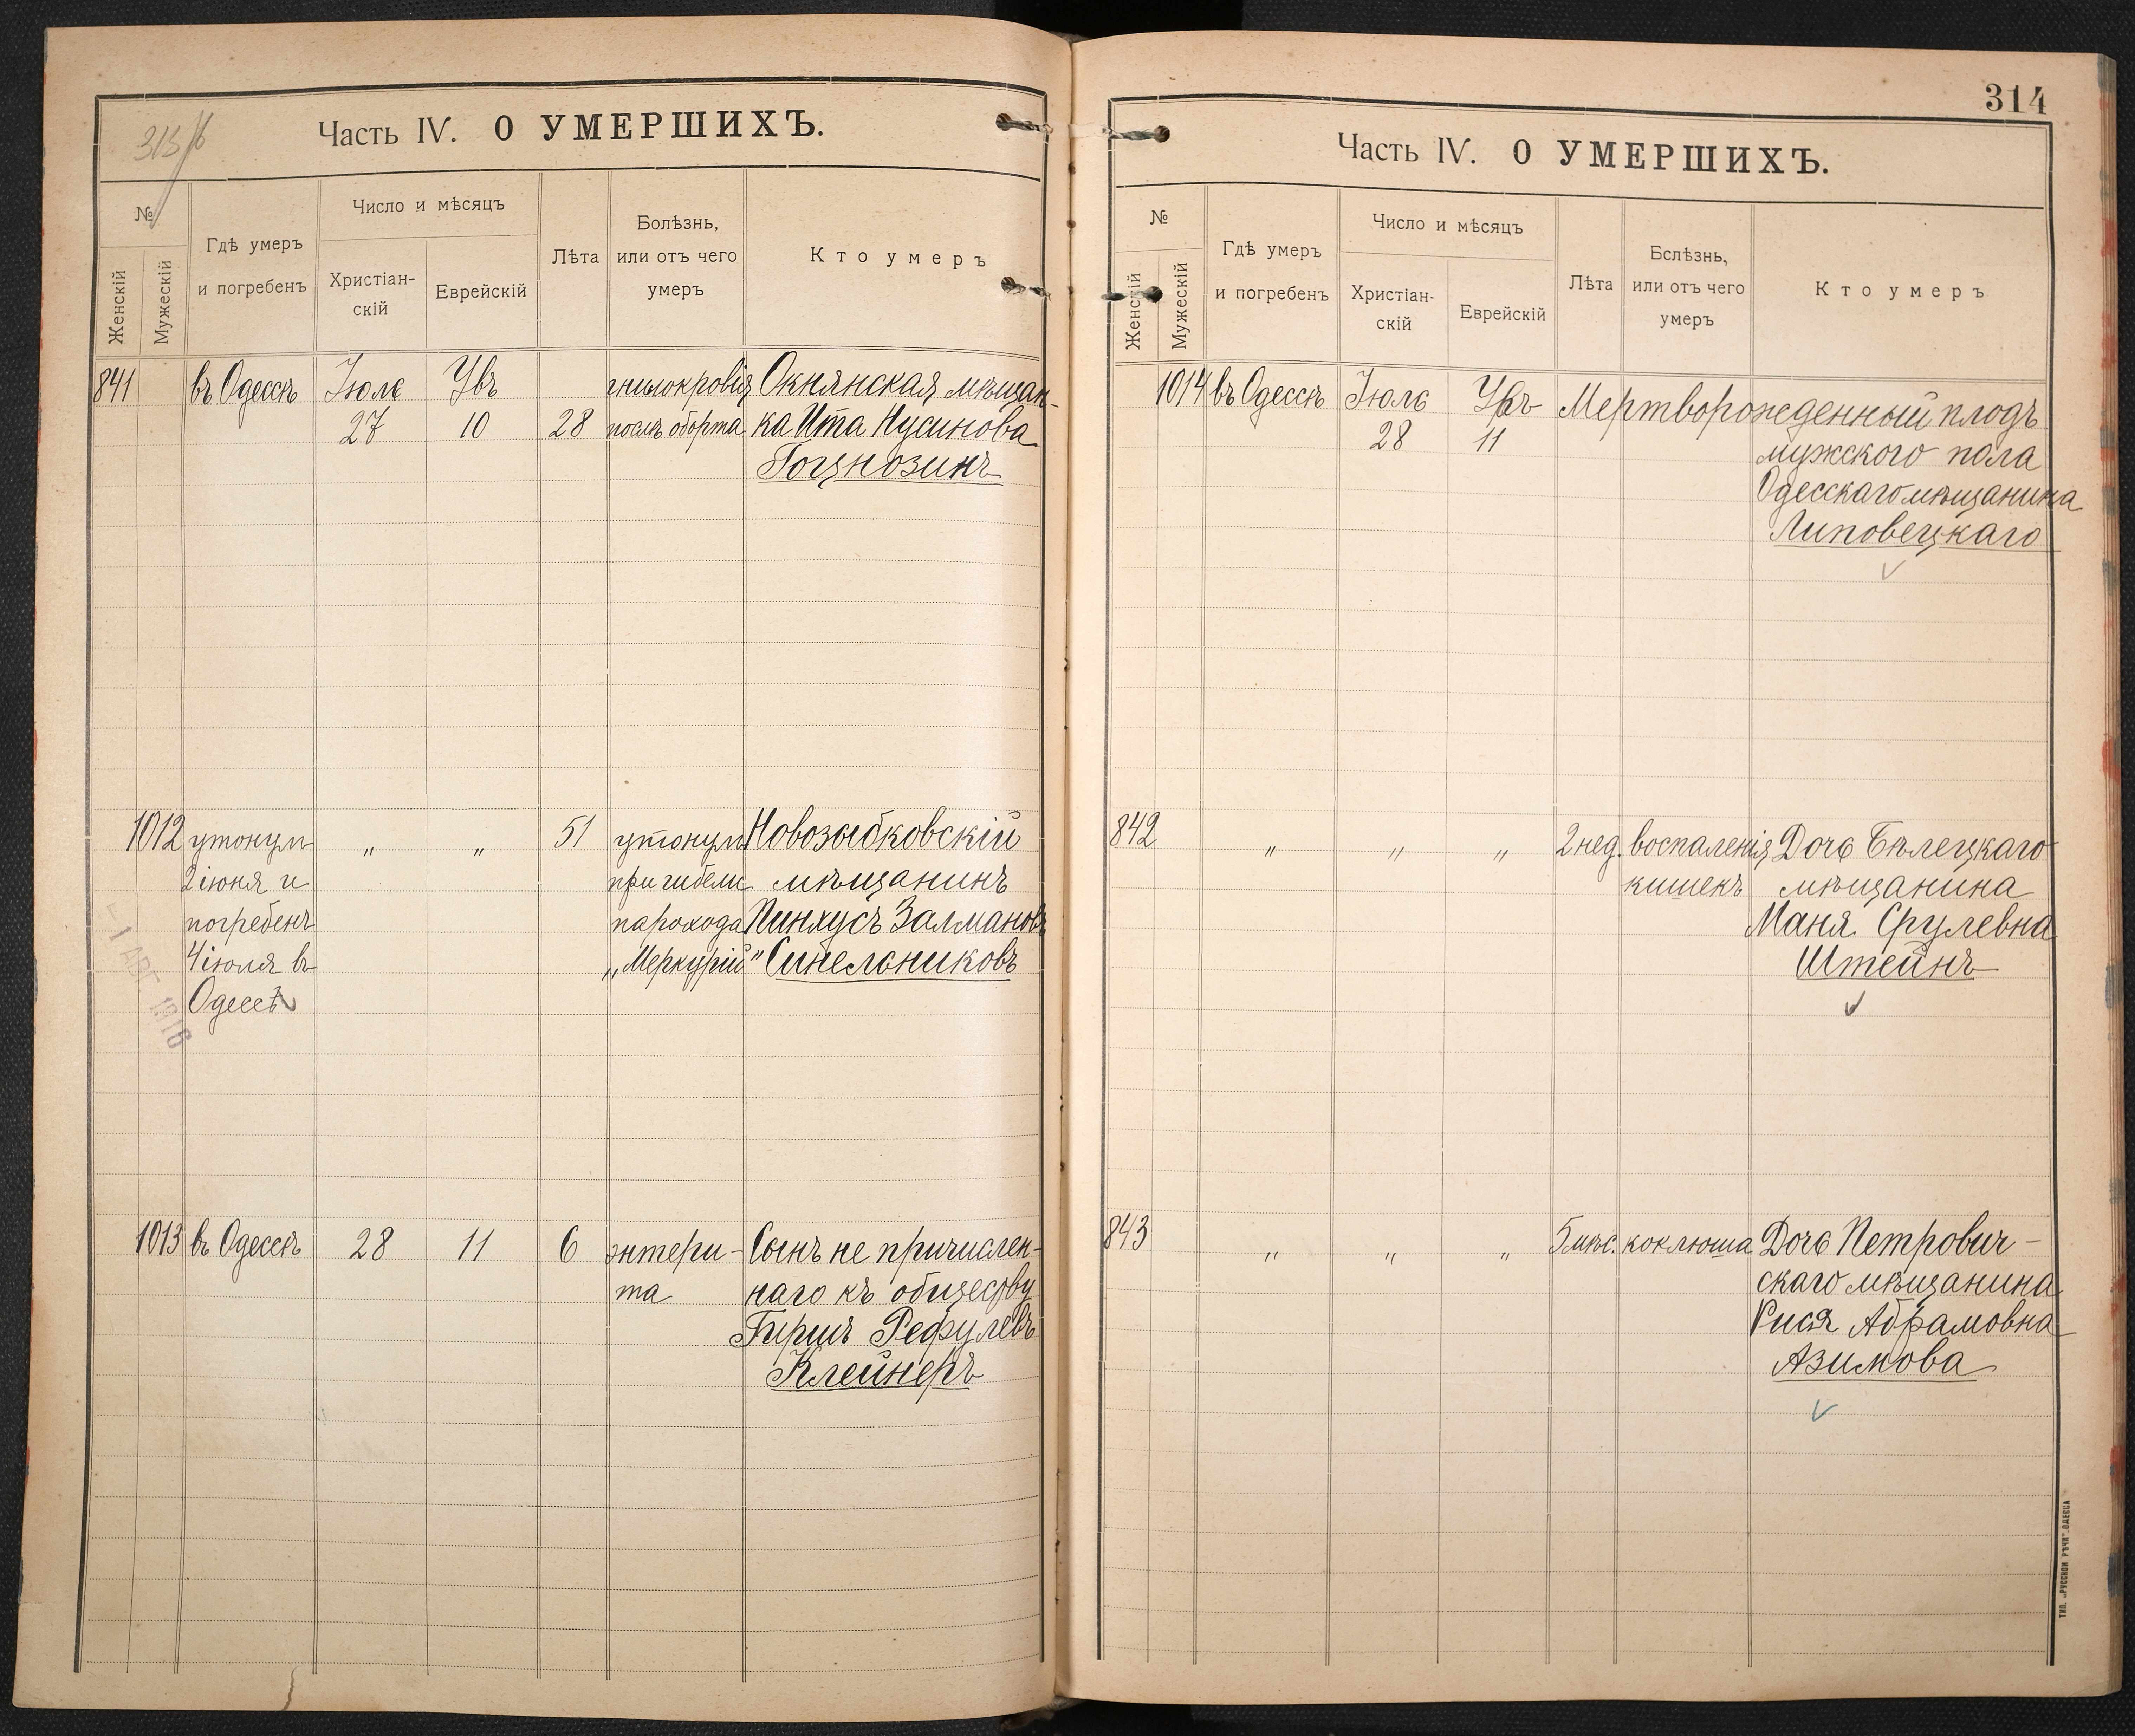 313/б
Часть IV. О УМЕРШИХЪ.
№
Женскій
Мужескій
Гдѣ умеръ
и погребенъ
Число и мѣсяцъ
Христіан-
скій
Еврейскій
Лѣта
Болѣзнь,
или отъ чего
умеръ
Кто умеръ
841 въ Одессѣ Іюля Увъ гнилокровія Окнянская мѣщан-
27 10 28 послѣ аборта ка Ита Нусинова
Гогцнозинъ
1012 утонулъ „ „ 51 утонулъ Новозыбковскій
2 іюня и при гибели мѣщанинъ
погребенъ парохода Пинхусъ Залмановъ
4 іюля въ „Меркурій" Синельниковъ
Одессѣ
- 1 АВГ 1916
1013 въ Одессѣ 28 11 6 энтери- Сынъ не причислен-
та наго къ обществу
Гиршъ Рефулевъ
Клейнеръ
314
Часть IV. О УМЕРШИХЪ.
№
Женскій
Мужескій
Гдѣ умеръ
и погребенъ
Число и мѣсяцъ
Христіан-
скій
Еврейскій
Лѣта
Бслѣзнь,
или отъ чего
умеръ
Кто умеръ
1014 въ Одессѣ Іюля Увъ Мертворожденный плодъ
28 11 мужского пола
Одесскаго мѣщанина
Липовецкаго
842 „ „ „ 2 нед. воспаленія Дочь Бѣлецкаго
кишекъ мѣщанина
Маня Срулевна
Штейнъ
843 „ „ „ 5 мѣс. коклюша Дочь Петрович-
скаго мѣщанина
Рися Абрамовна
Азимова
ТИП. „РУССКОЙ РѢЧИ" ОДЕССА